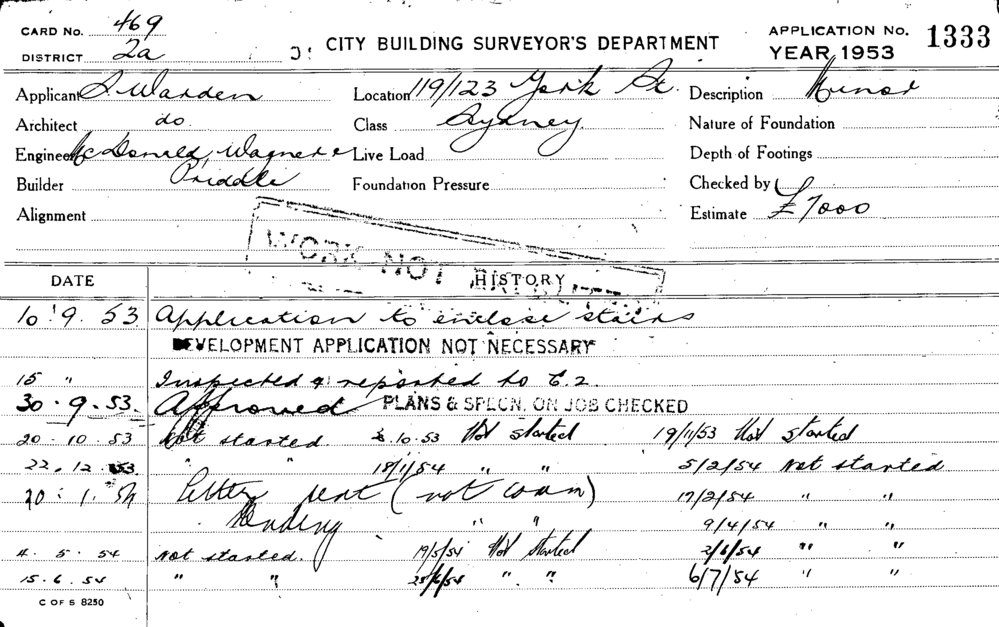 CARD No. 469
DISTRICT 2a
CITY BUILDING SURVEYOR'S DEPARTMENT
APPLICATION No. 1333
YEAR 1953
Applicant S. Warden Location 119/123 York St. Description Minor
Architect do. Class Sydney Nature of Foundation
Engineer McDonald, Wagner & Live Load Depth of Footings
Builder Priddle Foundation Pressure Checked by
Alignment Estimate £7000
WORK NOT
DATE HISTORY
10.9.53 Application to enclose stairs
DEVELOPMENT APPLICATION NOT NECESSARY
15 " Inspected & reported to E.2.
30.9.53. Approved PLANS & SPECN. ON JOB CHECKED
20.10.53 Not started. 10.53 Not started 19/11/53 Not started
22.12.53 " " 18/1/54 " " 5/2/54 Not started
20.1.54 Letter sent (not comm) 17/2/54 " "
Pending " " 9/4/54 " "
4.5.54 Not started. 19/5/54 Not started 2/6/54 " "
15.6.54 " " 25/6/54 " " 6/7/54 " "
C OF S 8250